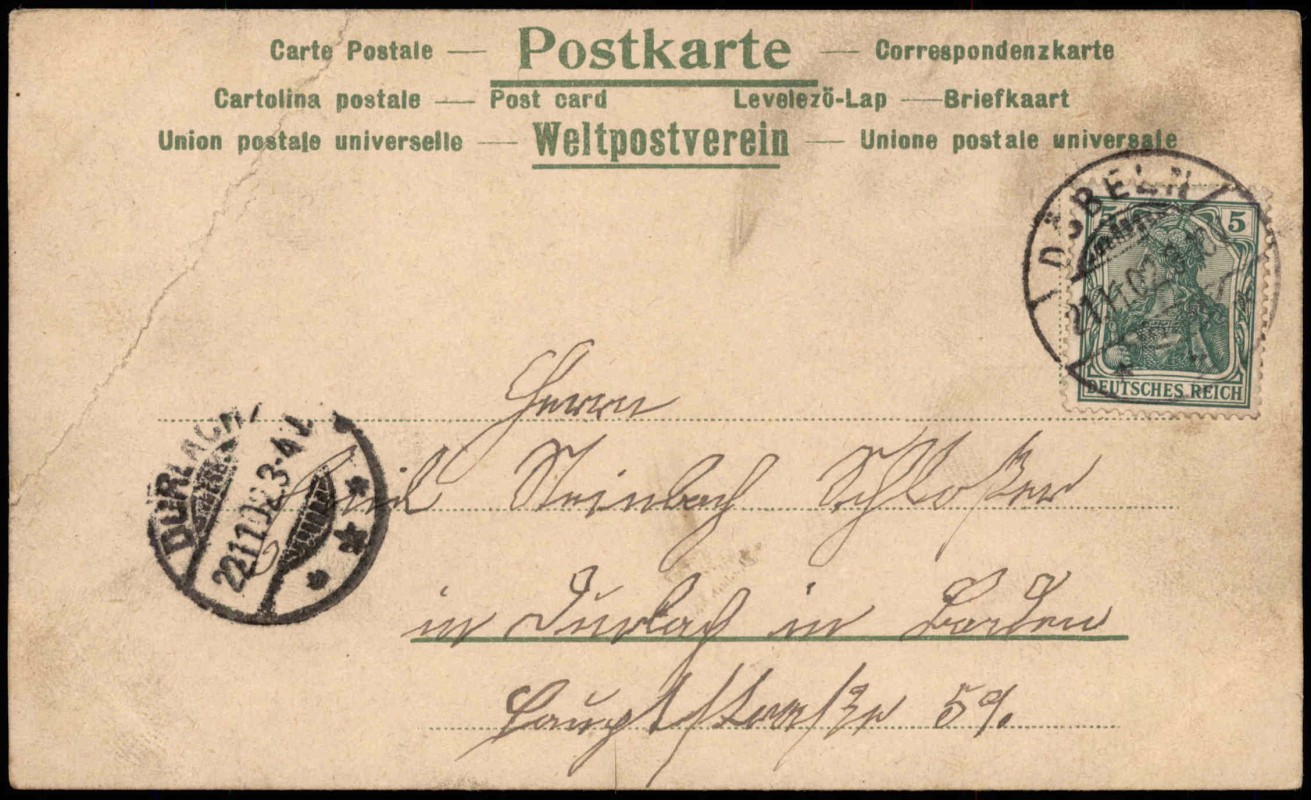 Carte Postale — Postkarte — Correspondenzkarte
Cartolina postale — Post card Levelezö-Lap — Briefkaart
Union postale universelle — Weltpostverein — Unione postale universale
DÖBELN
21.11.02.
5 5
DEUTSCHES REICH
Herrn
Emil Steinbach Schloßer
in Durlach in Baden
Hauptstraße 59.
DURLACH
22.11.02.3-4